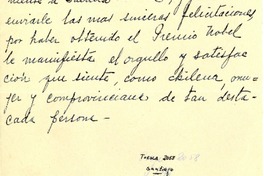 enviarle las mas sinceras felicitaciones
por haber obtenido el Premio Nobel
le manifiesta el orgullo y satisfac
ción que siente, como chilena, mu-
jer y comprovinciana de tan desta-
cada persona -
Santiago